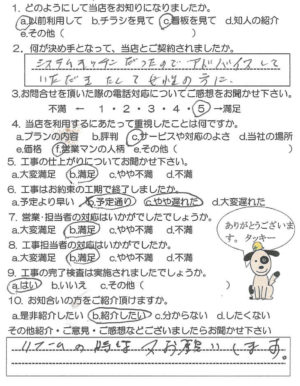 1. どのようにして当店をお知りになりましたか。
a.以前利用して b.チラシを見て c.看板を見て d.知人の紹介
e.その他(　　　　　)
2. 何が決め手となって、当店とご契約されましたか。
システムキッチンだったのでアドバイスして
いただきましたして女性の方に.
3.お問合せを頂いた際の電話対応についてご感想をお聞かせ下さい。
不満 ← 1・2・3・4・5 →満足
4. 当店を利用するにあたって重視したことは何ですか。
a.プランの内容 b.評判 c.サービスや対応のよさ d.当社の場所
e.価格 f.営業マンの人柄 e.その他(　　　　　)
5. 工事の仕上がりについてお聞かせ下さい。
a.大変満足 b.満足 c.やや不満 d.不満
6. 工事はお約束の工期で終了しましたか。
a.予定より早い b.予定通り c.やや遅れた d.大変遅れた
7. 営業・担当者の対応はいかがでしたでしょうか。
a.大変満足 b.満足 c.やや不満 d.不満
8. 工事担当者の対応はいかがでしたか。
a.大変満足 b.満足 c.やや不満 d.不満
9. 工事の完了検査は実施されましたでしょうか。
a.はい b.いいえ c.その他(　　　　　)
10. お知合いの方をご紹介頂けますか。
a.是非紹介したい b.紹介したい c.分からない d.したくない
その他紹介・ご意見・ご感想などございましたらお聞かせ下さい
リフォームの時は又お願いします。
ありがとうございま
す。タッキー